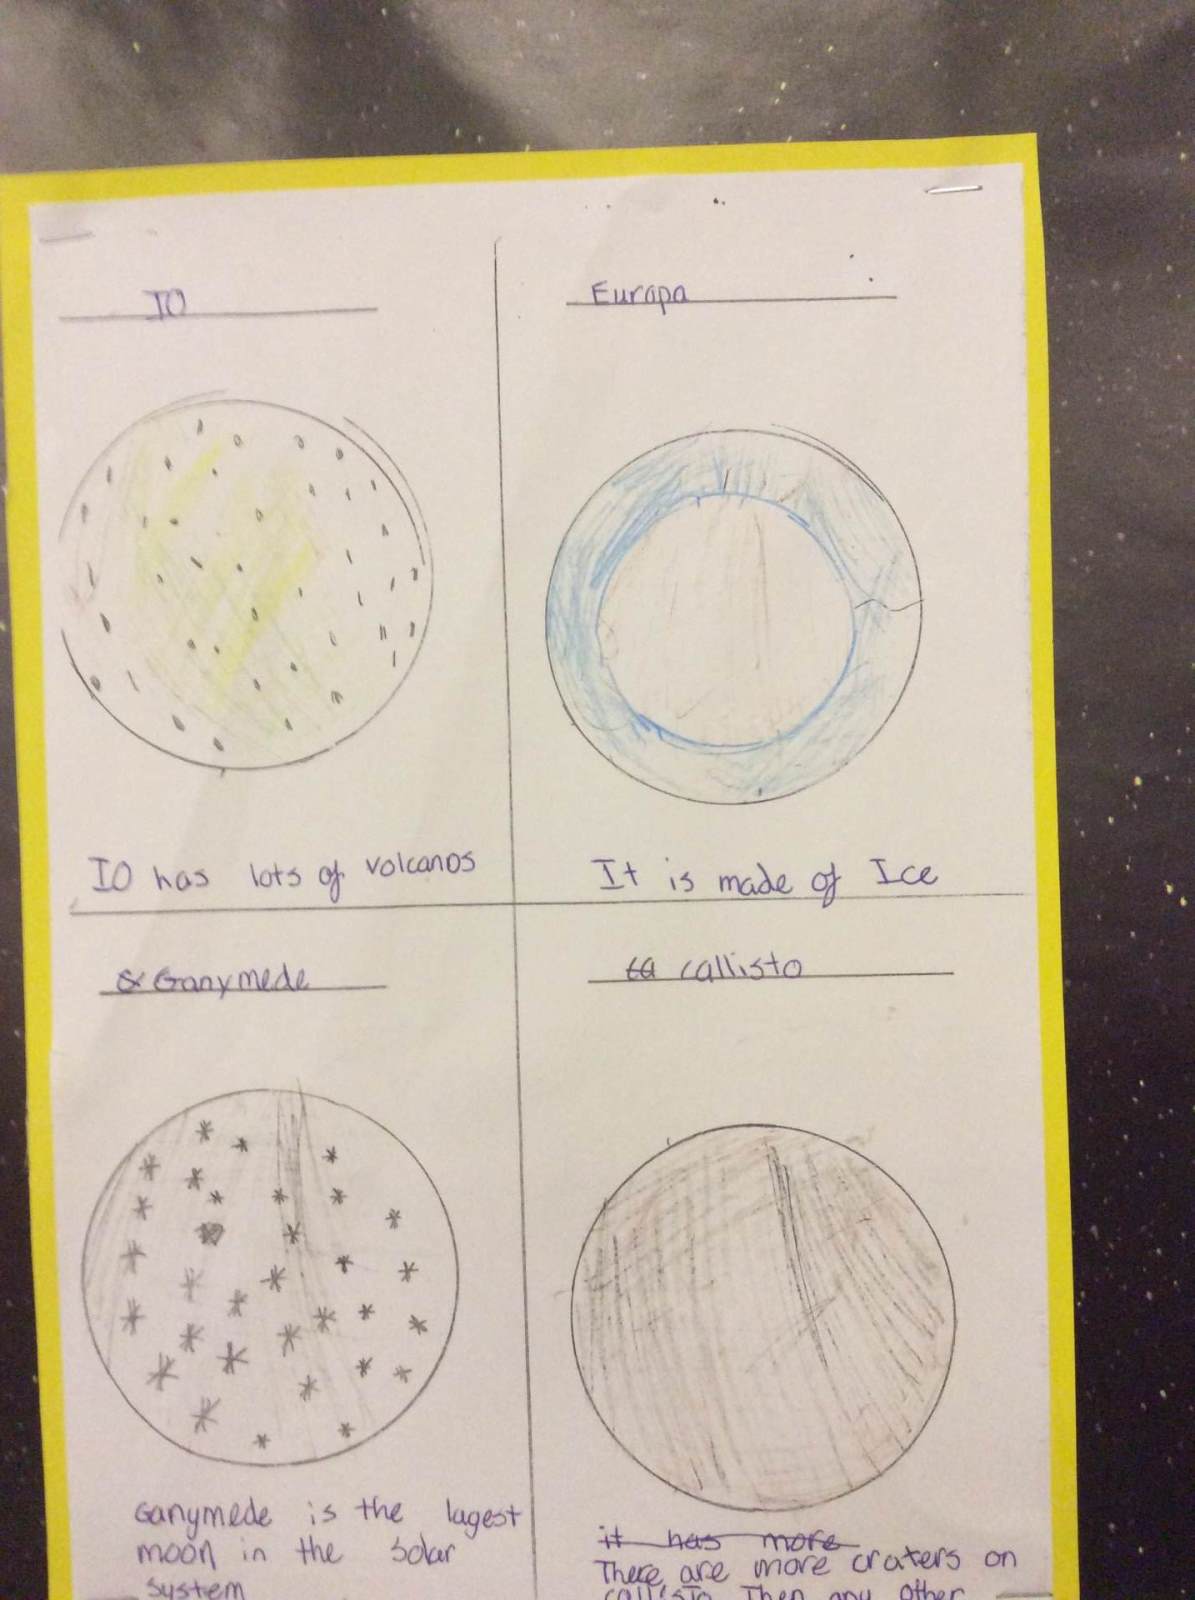 IO
Europa
IO has lots of volcanos
It is made of Ice
Ganymede
ca callisto
Ganymede is the lagest
moon in the solar
system
it has more
There are more craters on
callisto Then any other